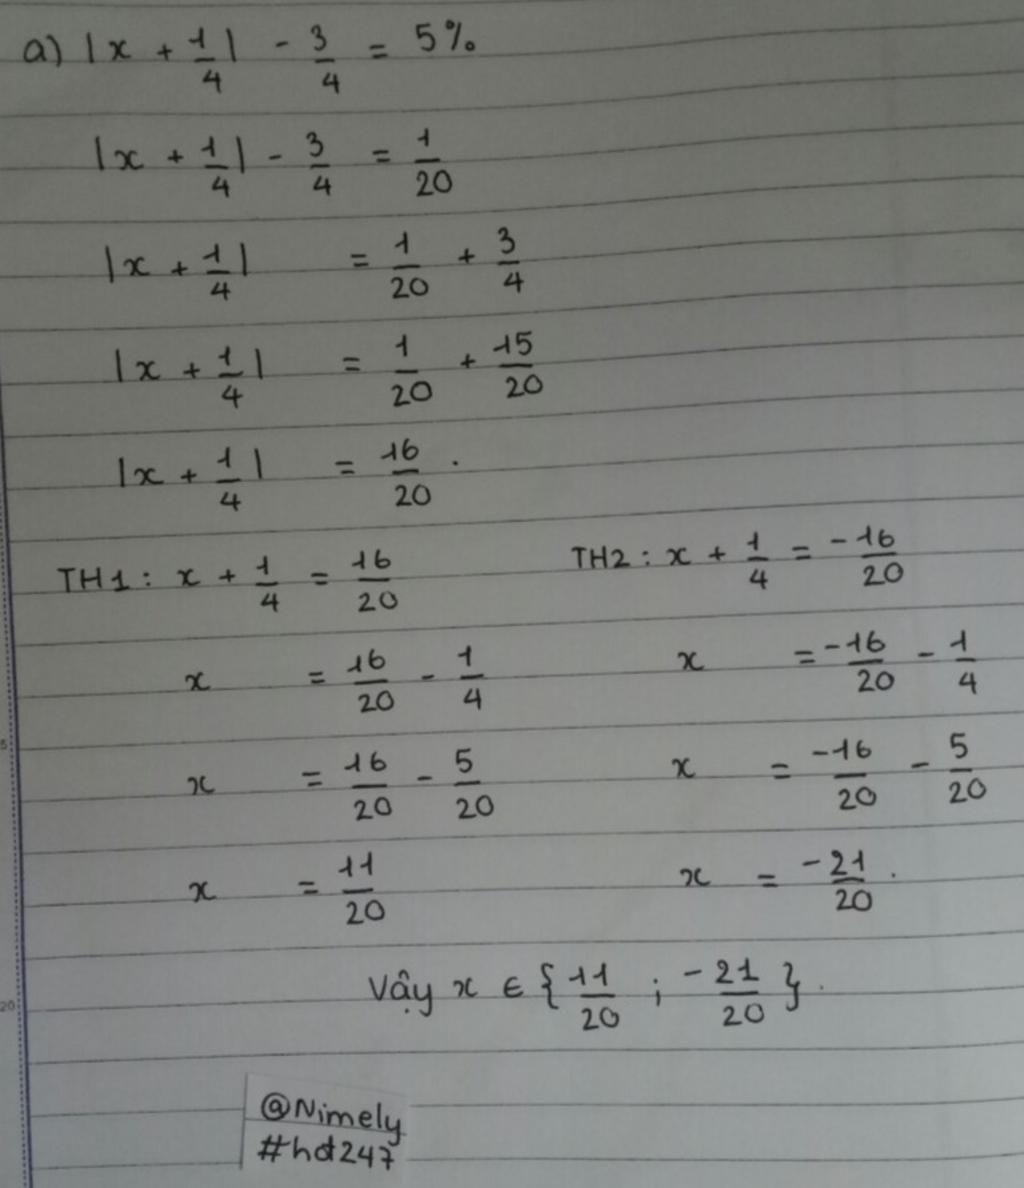 a) |x + 1/4| - 3/4 = 5%
|x + 1/4| - 3/4 = 1/20
|x + 1/4| = 1/20 + 3/4
|x + 1/4| = 1/20 + 15/20
|x + 1/4| = 16/20.
TH1: x + 1/4 = 16/20
x = 16/20 - 1/4
x = 16/20 - 5/20
x = 11/20
TH2: x + 1/4 = -16/20
x = -16/20 - 1/4
x = -16/20 - 5/20
x = -21/20.
Vậy x ∈ {11/20 ; -21/20}.
@Nimely
#hd247
5
20